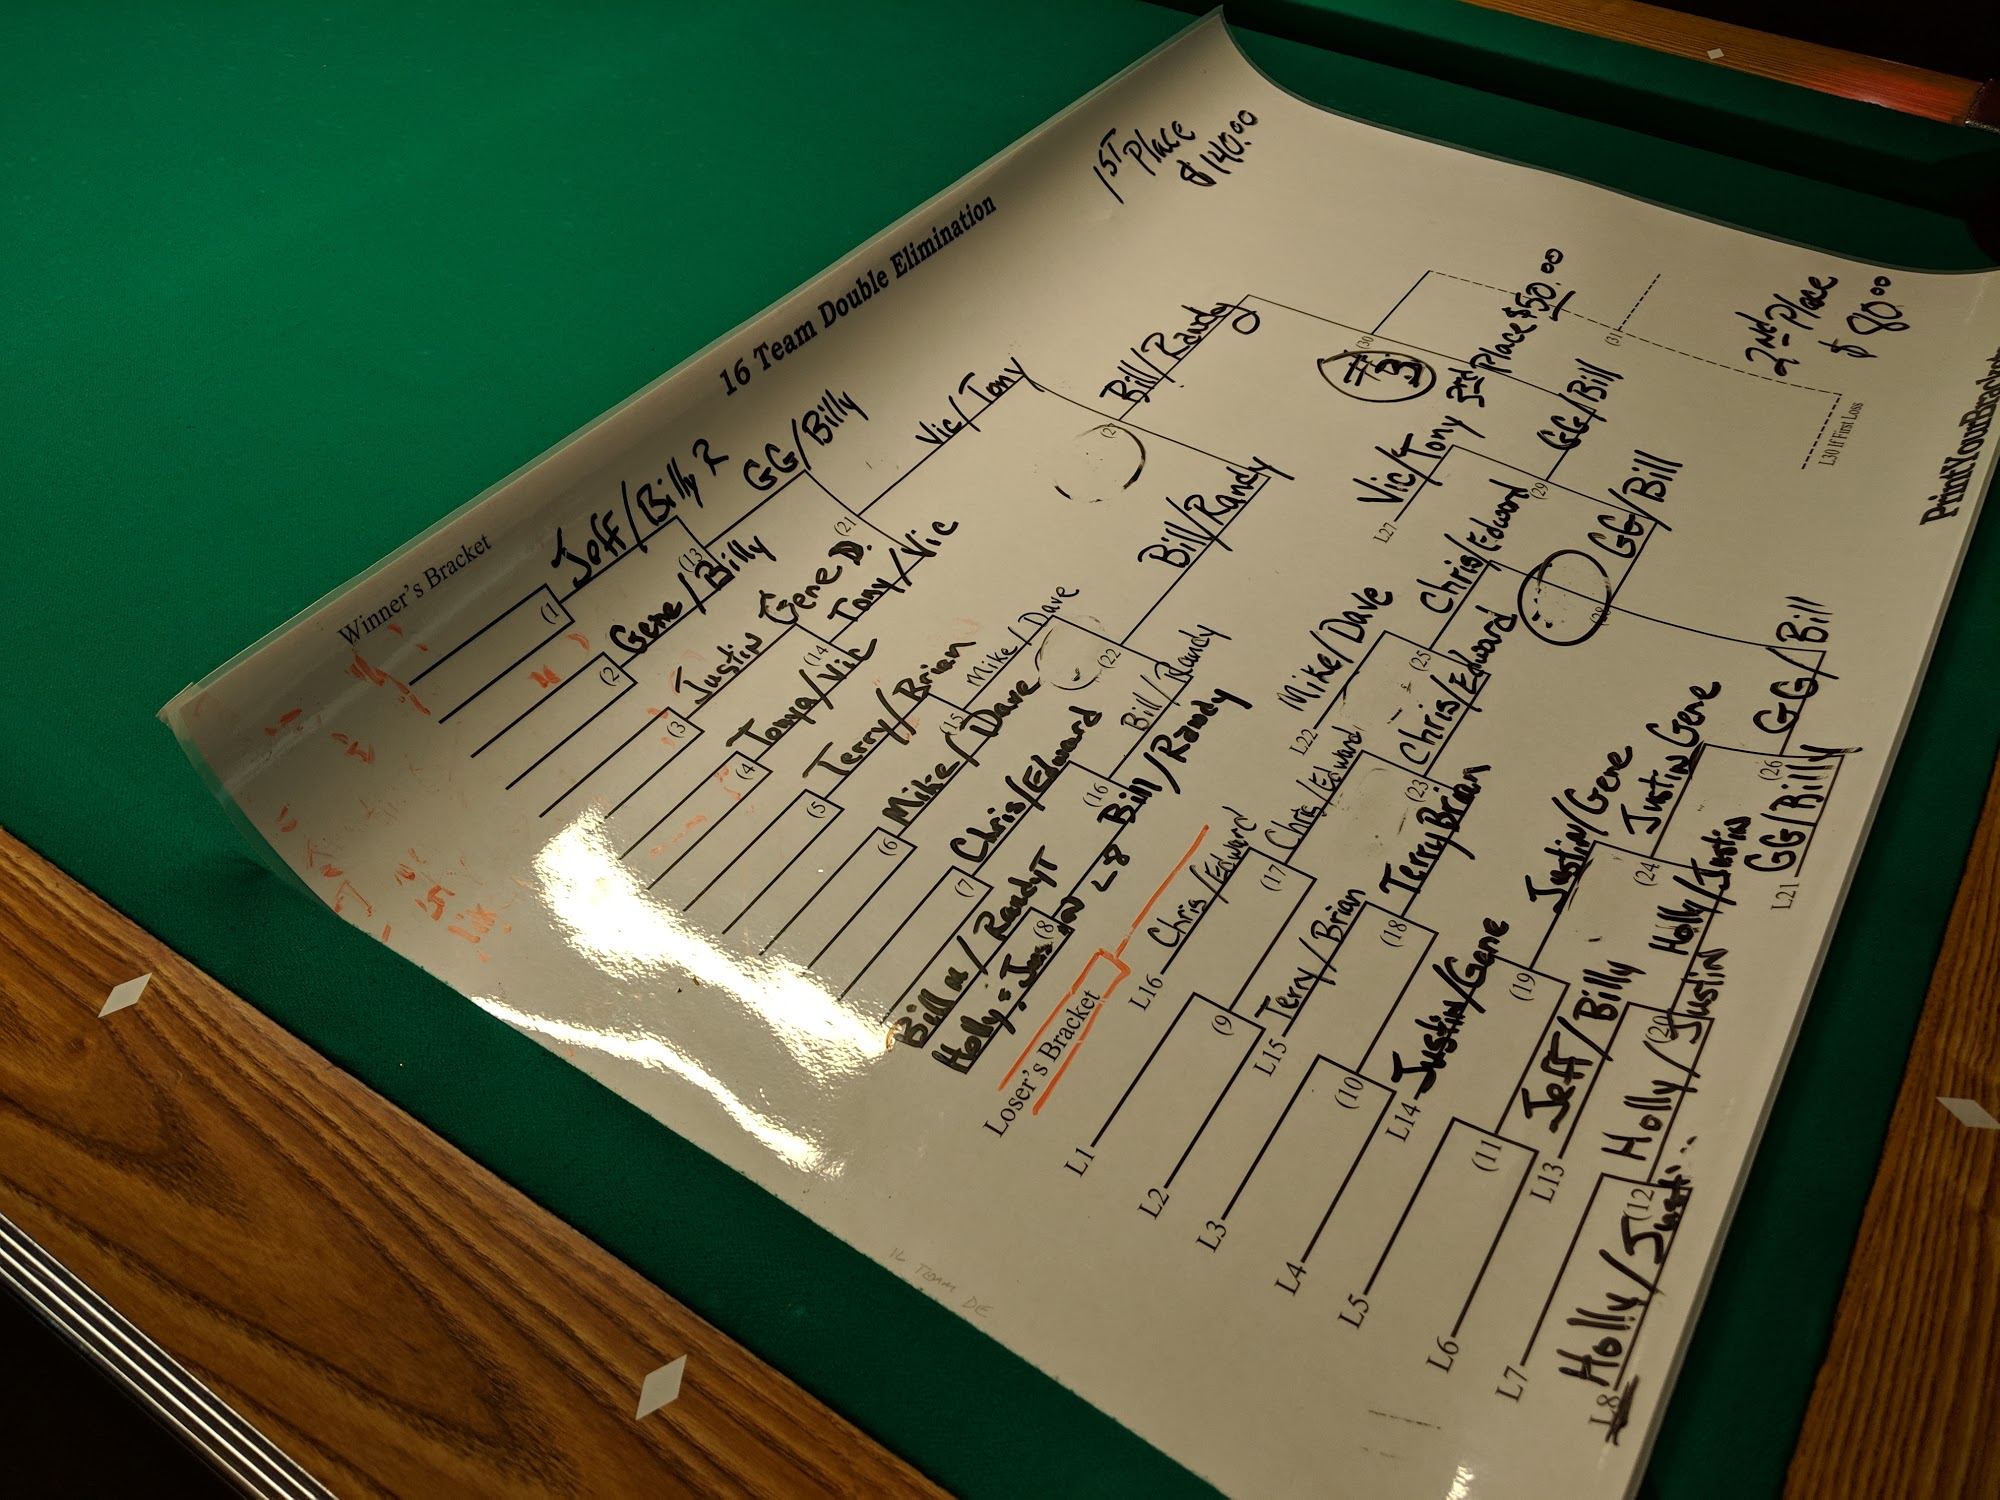 16 Team Double Elimination
1ST Place
$140.00
Winner's Bracket
(1
Jeff/Billy R
(2
Gene/Billy
(13
GG/Billy
(3
Justin Gene D.
(4
Tonya/Vic
(14
Tony/Vic
(21
Vic/Tony
(5
Terry/Brian
(6
Mike/Dave
(15
Mike/Dave
(7
Chris/Edward
Bill /RandyT
Holly
(8
L8
Bill/Randy
(16
Bill/Randy
(22
Bill/Randy
(27
Bill/Randy
(30
#3
(31
2nd Place
$80.00
L30 If First Loss
Loser's Bracket
L16
Chris/Edward
L1
L2
(9
(17
Chris/Edward
L15
Terry/Brian
L3
L4
(10
(18
Terry Brian
(23
Chris/Edward
L22
Mike/Dave
(25
Chris/Edward
L27
Vic/Tony 3rd Place $50.00
(29
GG/Bill
L14
Justin/Gene
L5
L6
(11
(19
Justin/Gene
L13
Jeff/Billy
L7
L8
Holly/Just...
(12
Holly/Justin
(20
Holly/Justin
(24
Justin Gene
L21
GG/Billy
(26
GG/Bill
(28
GG/Bill
16 TEAM DE